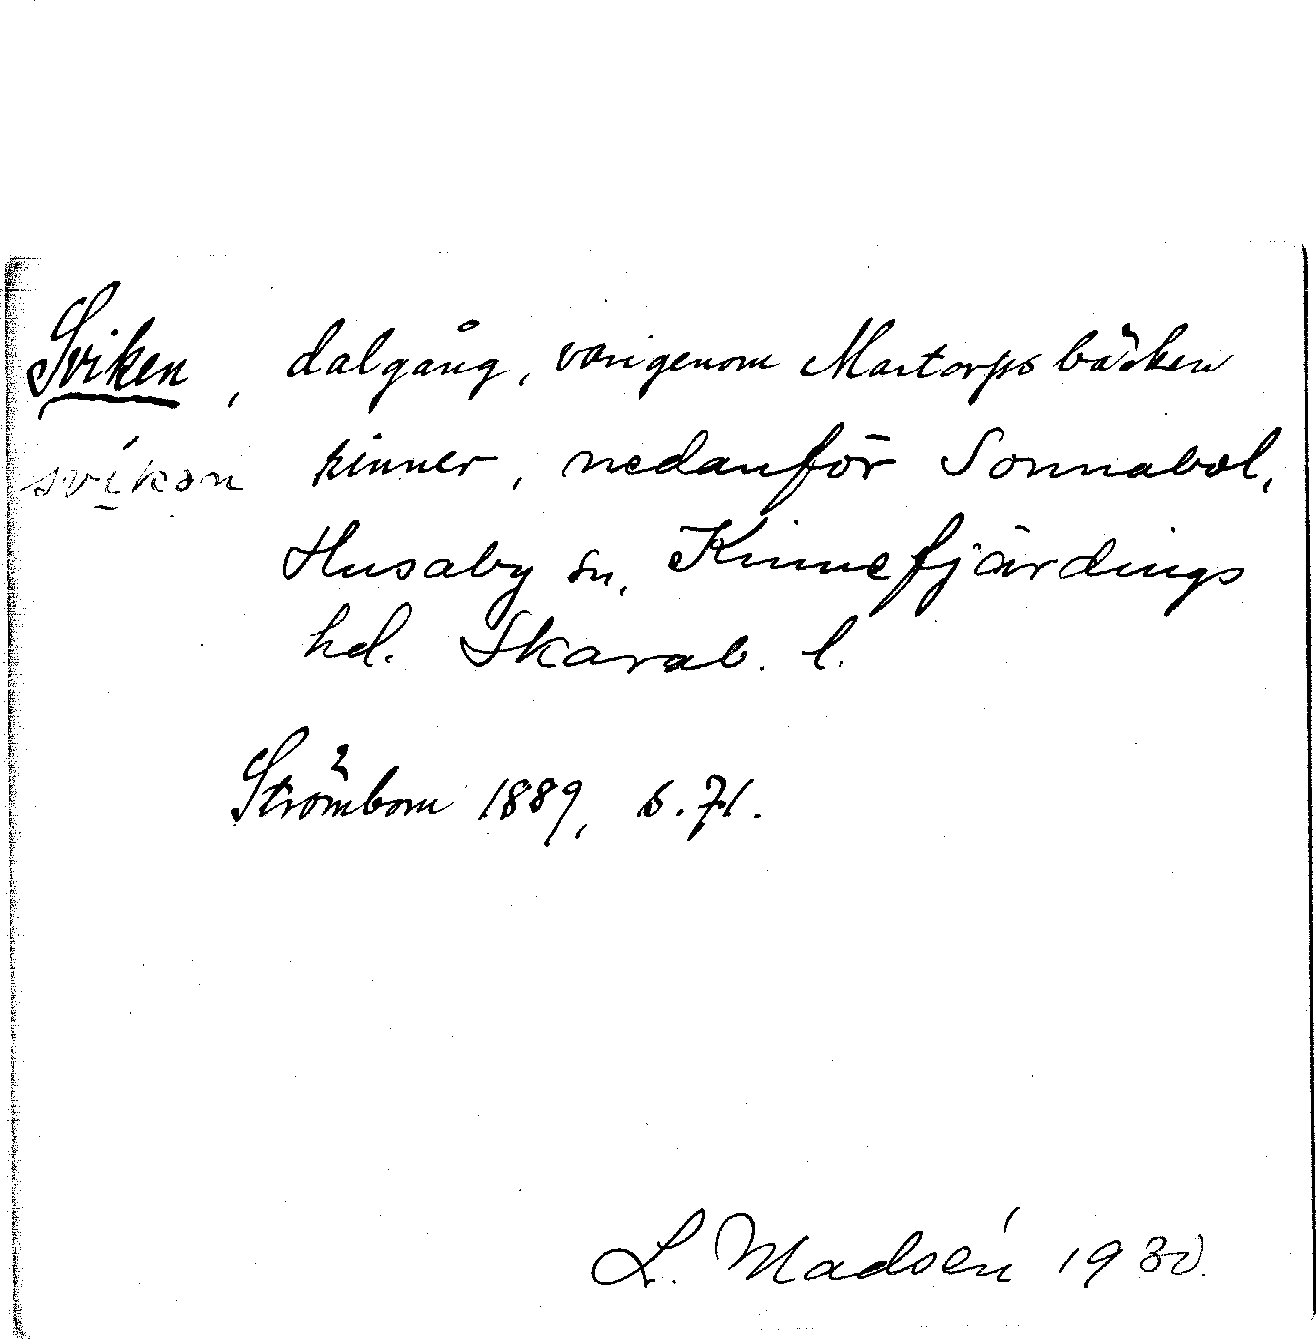 Sviken, dalgång, varigenom Martorpsbäcken
svikən rinner, nedanför Sonnabol,
Husaby sn, Kinnefjärdings
hd. Skarab. l.
Strömbom 1889, s. 71.
L. Madsén 1930.